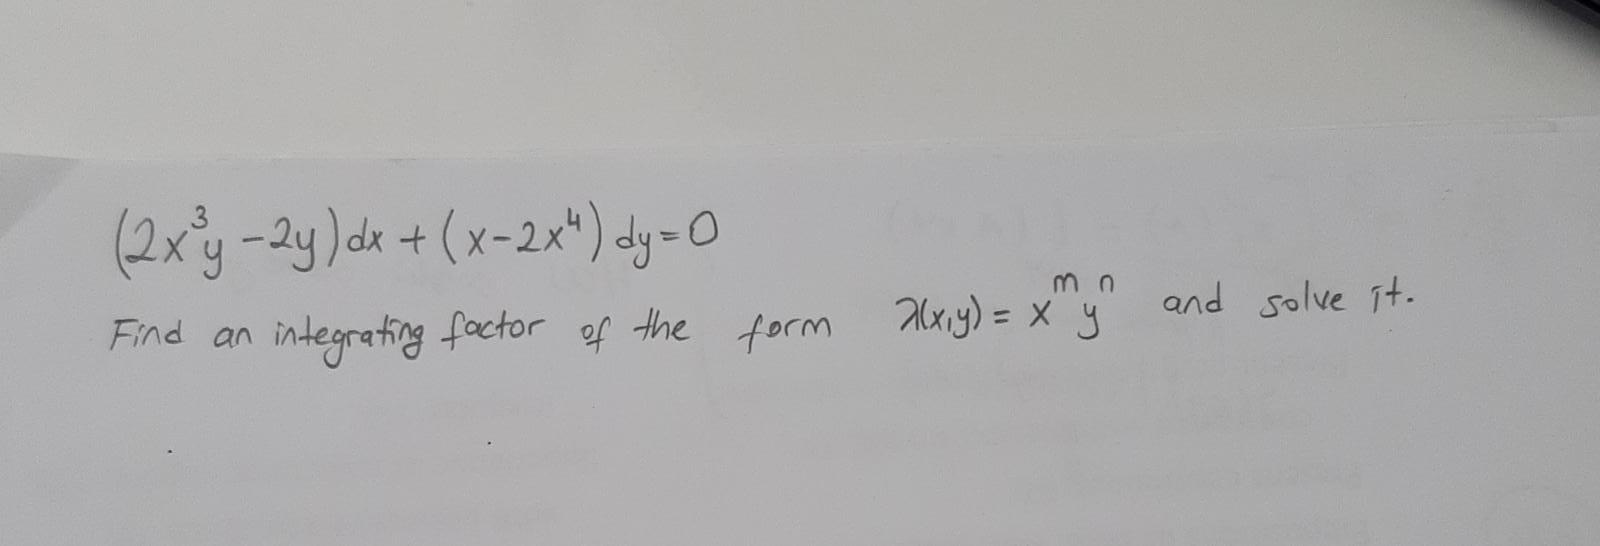 (2x³y - 2y)dx + (x - 2x⁴) dy = 0
Find an integrating factor of the form λ(x,y) = x^m y^n and solve it.